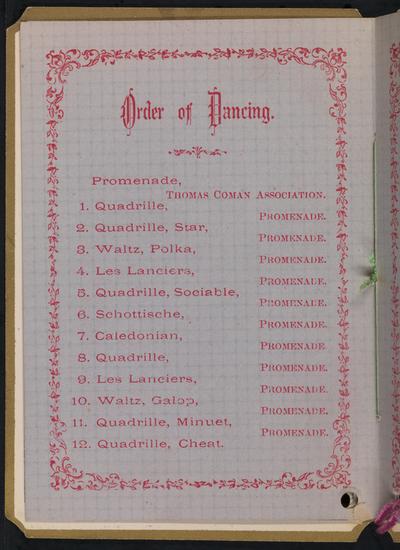 Order of Dancing.
Promenade,
THOMAS COMAN ASSOCIATION.
1. Quadrille,
PROMENADE.
2. Quadrille, Star,
PROMENADE.
3. Waltz, Polka,
PROMENADE.
4. Les Lanciers,
PROMENADE.
5. Quadrille, Sociable,
PROMENADE.
6. Schottische,
PROMENADE.
7. Caledonian,
PROMENADE.
8. Quadrille,
PROMENADE.
9. Les Lanciers,
PROMENADE.
10. Waltz, Galop,
PROMENADE.
11. Quadrille, Minuet,
PROMENADE.
12. Quadrille, Cheat.